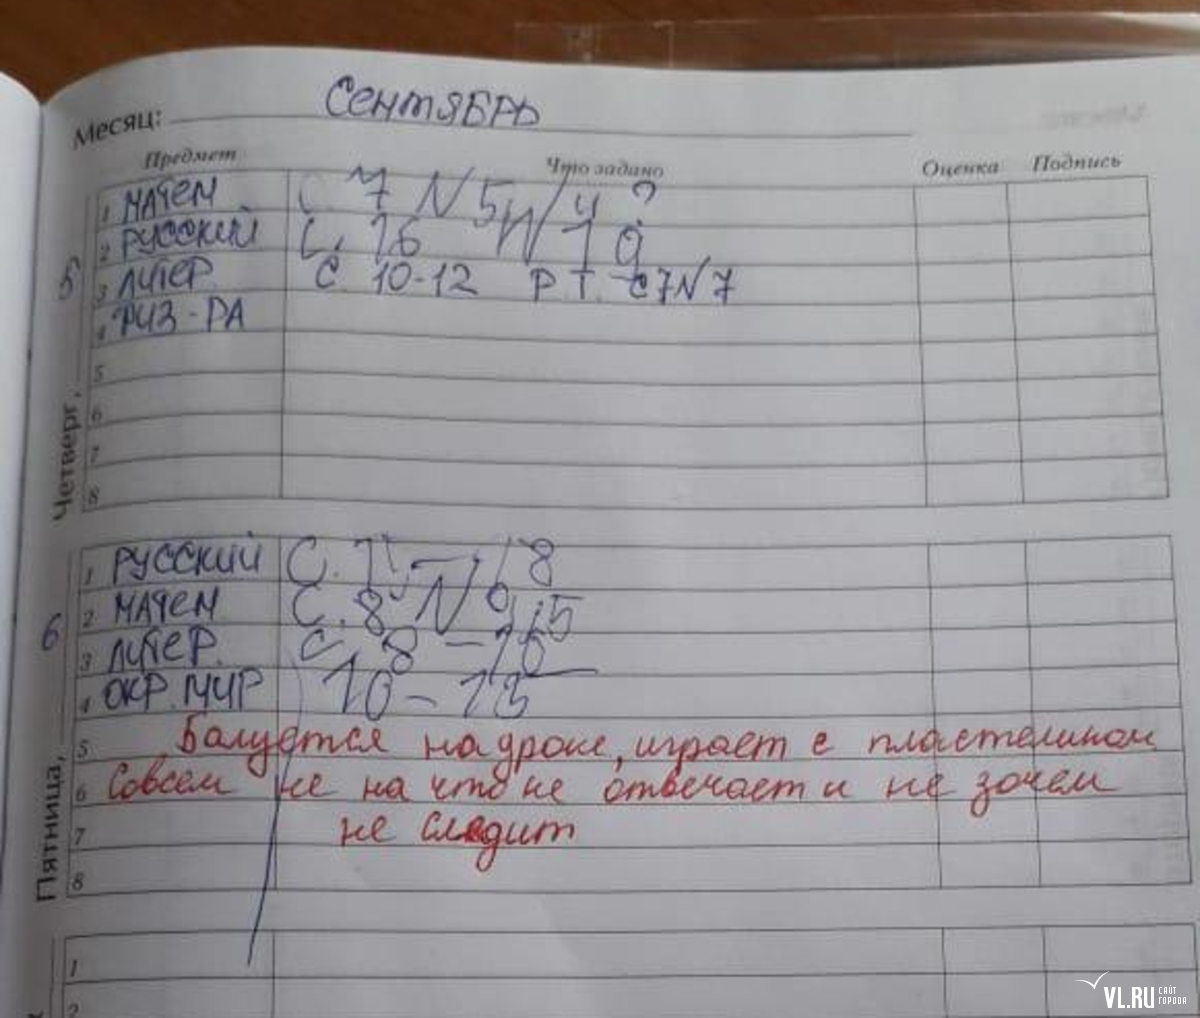 Месяц: СЕНТЯБРЬ
Предмет Что задано Оценка Подпись
Четверг, 5
1 МАТЕМ С. 7 N 5
2 РУССКИЙ С. 16
3 ЛИТЕР. С 10-12 Р Т. С7N7
4 ФИЗ-РА
5
6
7
8
Пятница, 6
1 РУССКИЙ С.
2 МАТЕМ С. 8 N
3 ЛИТЕР. С. 8 -
4 ОКР. МИР 10-13
5 Балуется на уроке, играет с пластелином
6 Совсем не на что не отвечает и не зачем
7 не следит
8
1
2
VL.RU САЙТ ГОРОДА